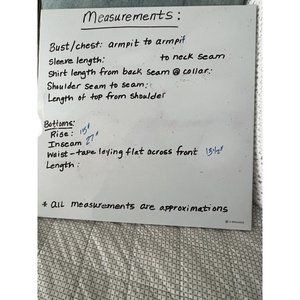 Measurements:
Bust/chest: armpit to armpit
Sleeve length: to neck seam
Shirt length from back seam @ collar:
Shoulder seam to seam:
Length of top from shoulder
Bottoms:
Rise: 15"
Inseam 27"
Waist-tape laying flat across front 13½"
Length:
* all measurements are approximations